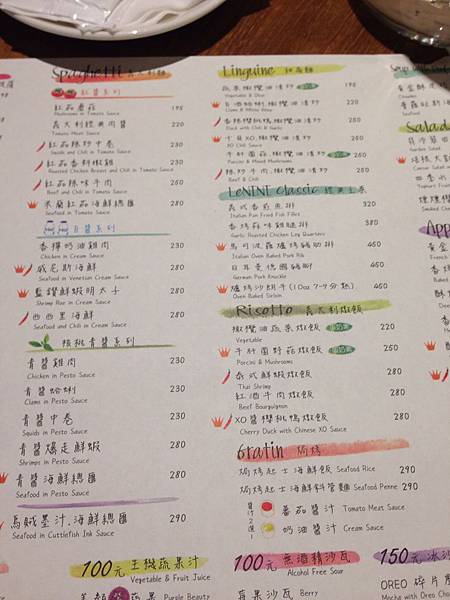 Spaghetti 義大利麵
紅醬系列
紅茄蘑菇 195
Mushrooms in Tomato Sauce
義大利經典肉醬 220
Tomato Meat Sauce
紅茄辣炒中卷 230
Squids and Chili in Tomato Sauce
紅茄香料椒雞 230
Roasted Chicken Breast and Chili in Tomato Sauce
紅茄辣味牛肉 260
Beef and Chili in Tomato Sauce
米蘭紅茄海鮮總匯 280
Seafood in Tomato Sauce
白醬系列
香檸奶油雞肉 230
Chicken in Cream Sauce
威尼斯海鮮 280
Seafood in Venetian Cream Sauce
藍鑽鮮蝦明太子 280
Shrimp Roe in Cream Sauce
西西里海鮮 280
Seafood and Chili in Cream Sauce
核桃青醬系列
青醬雞肉 230
Chicken in Pesto Sauce
青醬蛤蜊 230
Clams in Pesto Sauce
青醬中卷 230
Squids in Pesto Sauce
青醬爆走鮮蝦 280
Shrimps in Pesto Sauce
青醬海鮮總匯 280
Seafood in Pesto Sauce
烏賊墨汁.海鮮總匯 290
Seafood in Cuttlefish Ink Sauce
100元 王機蔬果汁
Vegetable & Fruit Juice
Purple Beauty
Linguine 細扁麵
蔬菜橄欖油清炒 195
Vegetable & Olive
橄欖油清炒 220
Clams & White Wine
Duck with Chili & Garlic
十貝XO.橄欖油清炒
XO Chili Sauce
牛肝菌菇.橄欖油清炒 260
Porcini & Mixed Mushrooms
辣炒牛肉.橄欖油清炒 260
Beef & Chili
LeNINI Classic 經典主菜
義式香煎魚排 320
Italian Pan Fried Fish Fillet
香烤蒜味雞腿排 380
Garlic Roasted Chicken Leg Quarters
馬可波羅爐烤豬肋排 450
Italian Oven Baked Pork Rib
日耳曼德國豬腳 450
German Pork Knuckle
爐烤沙朗牛(10oz 7-9分熟) 450
Oven Baked Sirloin
Risotto 義大利燉飯
橄欖油蔬菜燉飯 220
Vegetable
牛肝菌野菇燉飯 250
Porcini & Mushrooms
泰式鮮蝦燉飯 280
Thai Shrimp
紅酒牛肉燉飯 280
Beef Bourguignon
XO醬櫻桃鴨燉飯 280
Cherry Duck with Chinese XO Sauce
Gratin 焗烤
焗烤起士海鮮飯 Seafood Rice 290
焗烤起士海鮮斜管麵 Seafood Penne 290
醬汁2選1
番茄醬汁 Tomato Meat Sauce
奶油醬汁 Cream Sauce
100元 無酒精沙瓦
Alcohol Free Sour
莓果沙瓦 Berry
Salad
Garden Salad
150元 冰沙
OREO 碎片
Mocha with Oreo